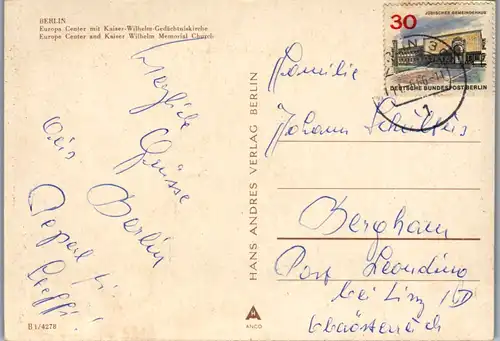 BERLIN
Europa Center mit Kaiser-Wilhelm-Gedächtniskirche
Europe Center and Kaiser Wilhelm Memorial Church
Herzliche
Grüsse
aus
Berlin
Steffi
B 1/4278
HANS ANDRES VERLAG BERLIN
ANCO
JÜDISCHES GEMEINDEHAUS
30
DEUTSCHE BUNDESPOST BERLIN
1
Familie
Johann
Bergham
Post Leonding
bei Linz /D
Oberösterreich